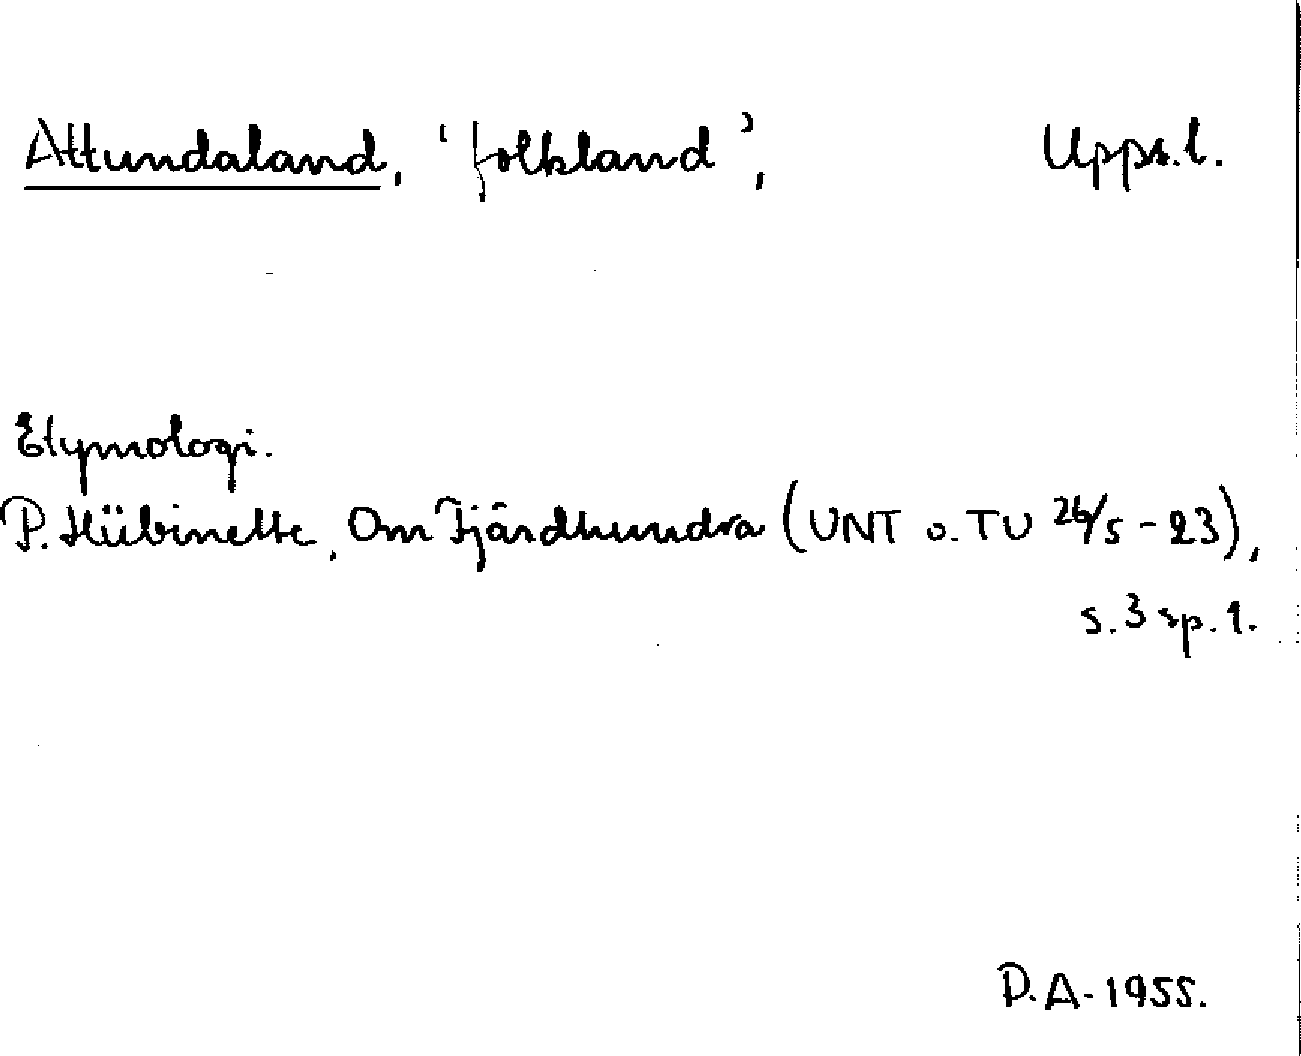 Attundaland, 'folkland', Upps.l.
Etymologi.
P. Hübinette, Om Fjärdhundra (UNT o. TU 26/5 - 23),
s. 3 sp. 1.
D.A. 1955.